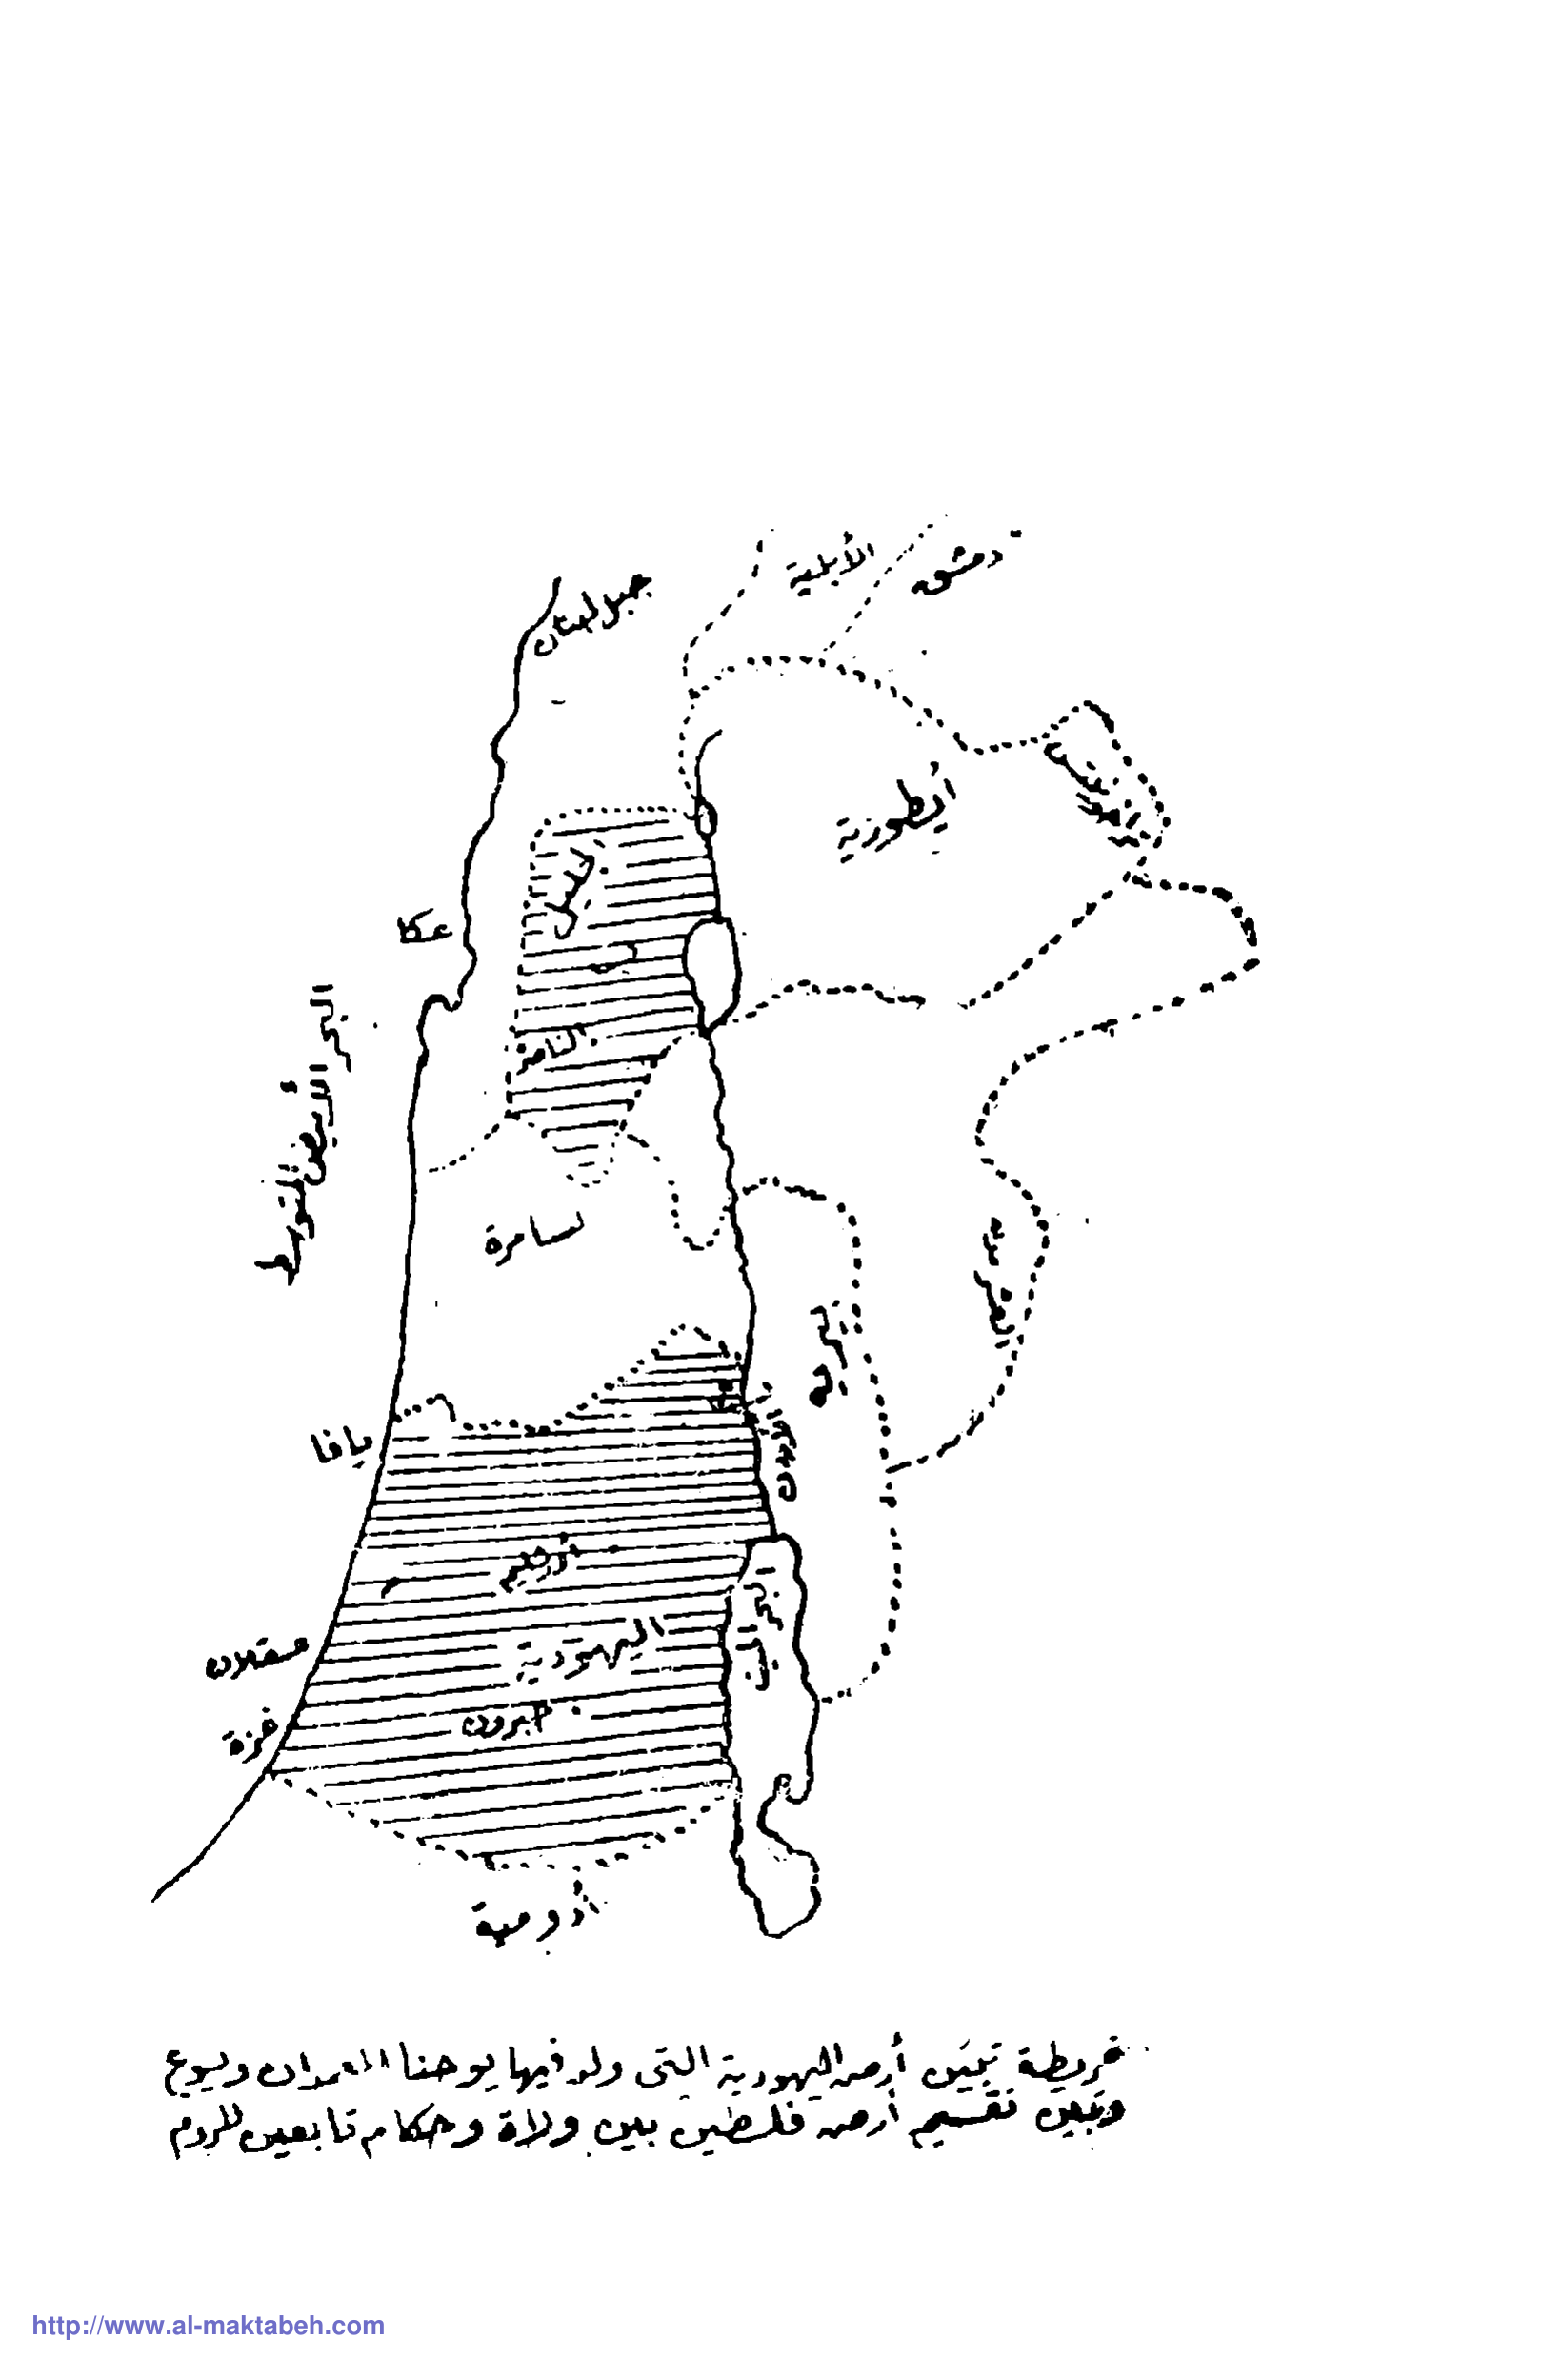 دمشق
الأبلية
جبل لبنان
إيطورية
الجليل
عكا
الناصرة
البحر الأبيض المتوسط
السامرة
يافا
الأردن
أورشليم
اليهودية
البحر الميت
عسقلان
حبرون
غزة
أدومية
خريطة تبين أرض اليهودية التى ولد فيها يوحنا المعمدان ويسوع
وتبين تقسيم أرض فلسطين بين ولاة وحكام تابعين للروم
http://www.al-maktabeh.com